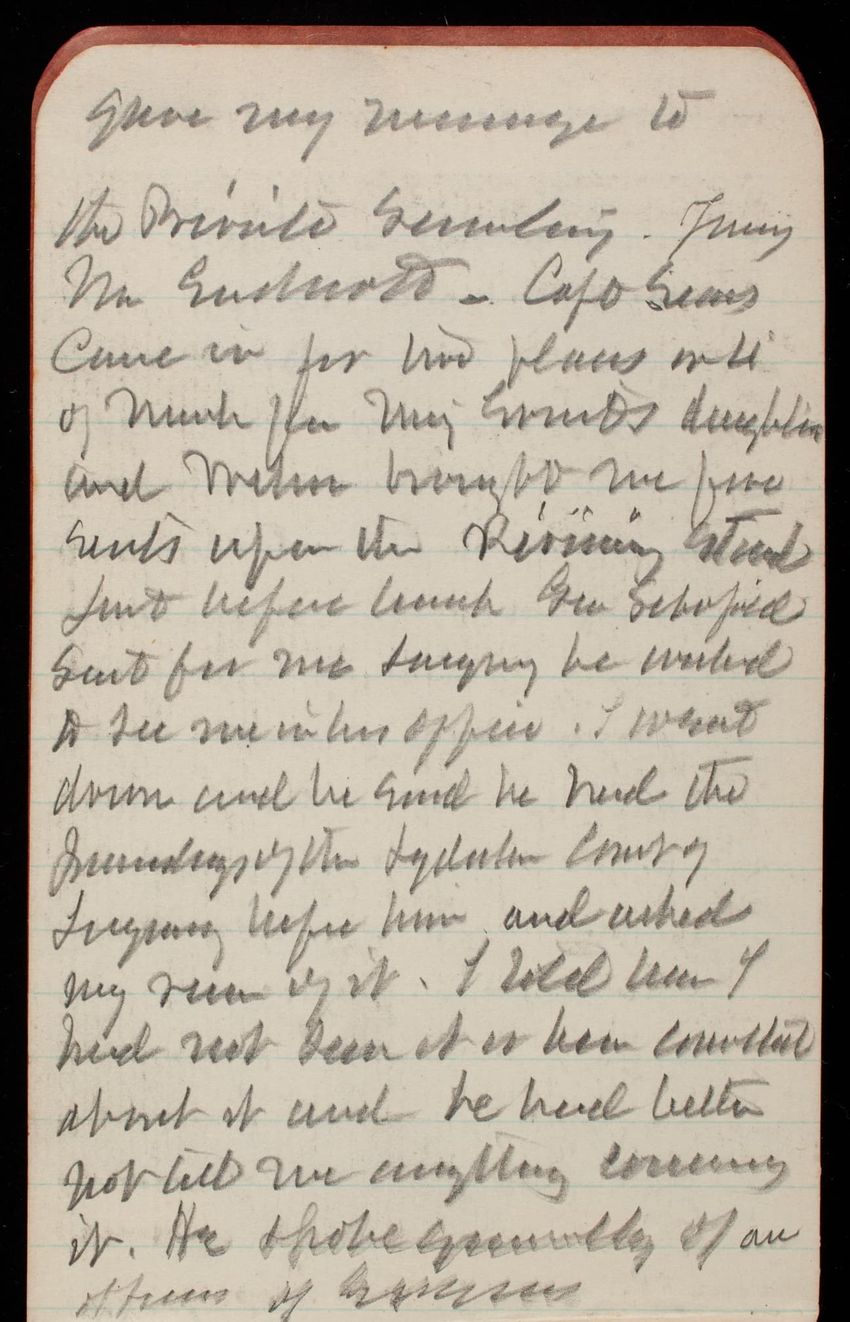 gave my message to
the Private Secretary.
Mr Endicott - Capt Sears
Came in for two plans
of Mink for Miss daughter
and brought me five
sents upon the
Just before lunch Gen Schofield
Sent for me saying he wished
to see me in his office. I went
down and he said he had the
proceedings of the Lydecker Court of
Inquiry before him and asked
my view of it. I told him I
had not seen it or been consulted
about it and he had better
not tell me anything concerning
it. He spoke generally of an
of